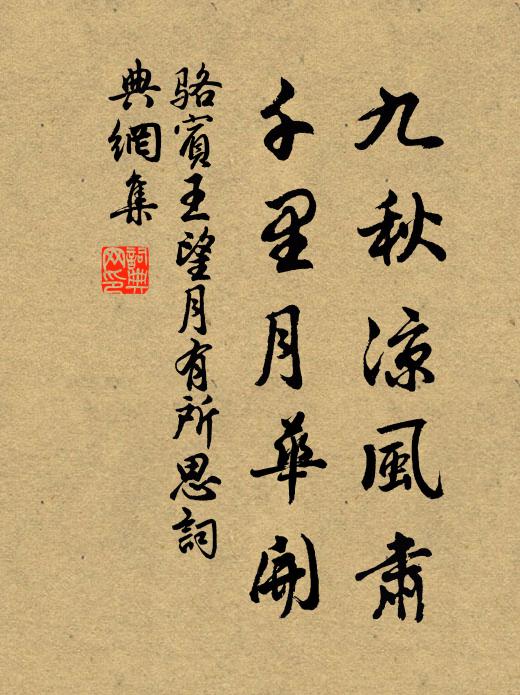 九秋凉風肅
千里月華開
駱賓王望月有所思詞
典網集
詞典
网印